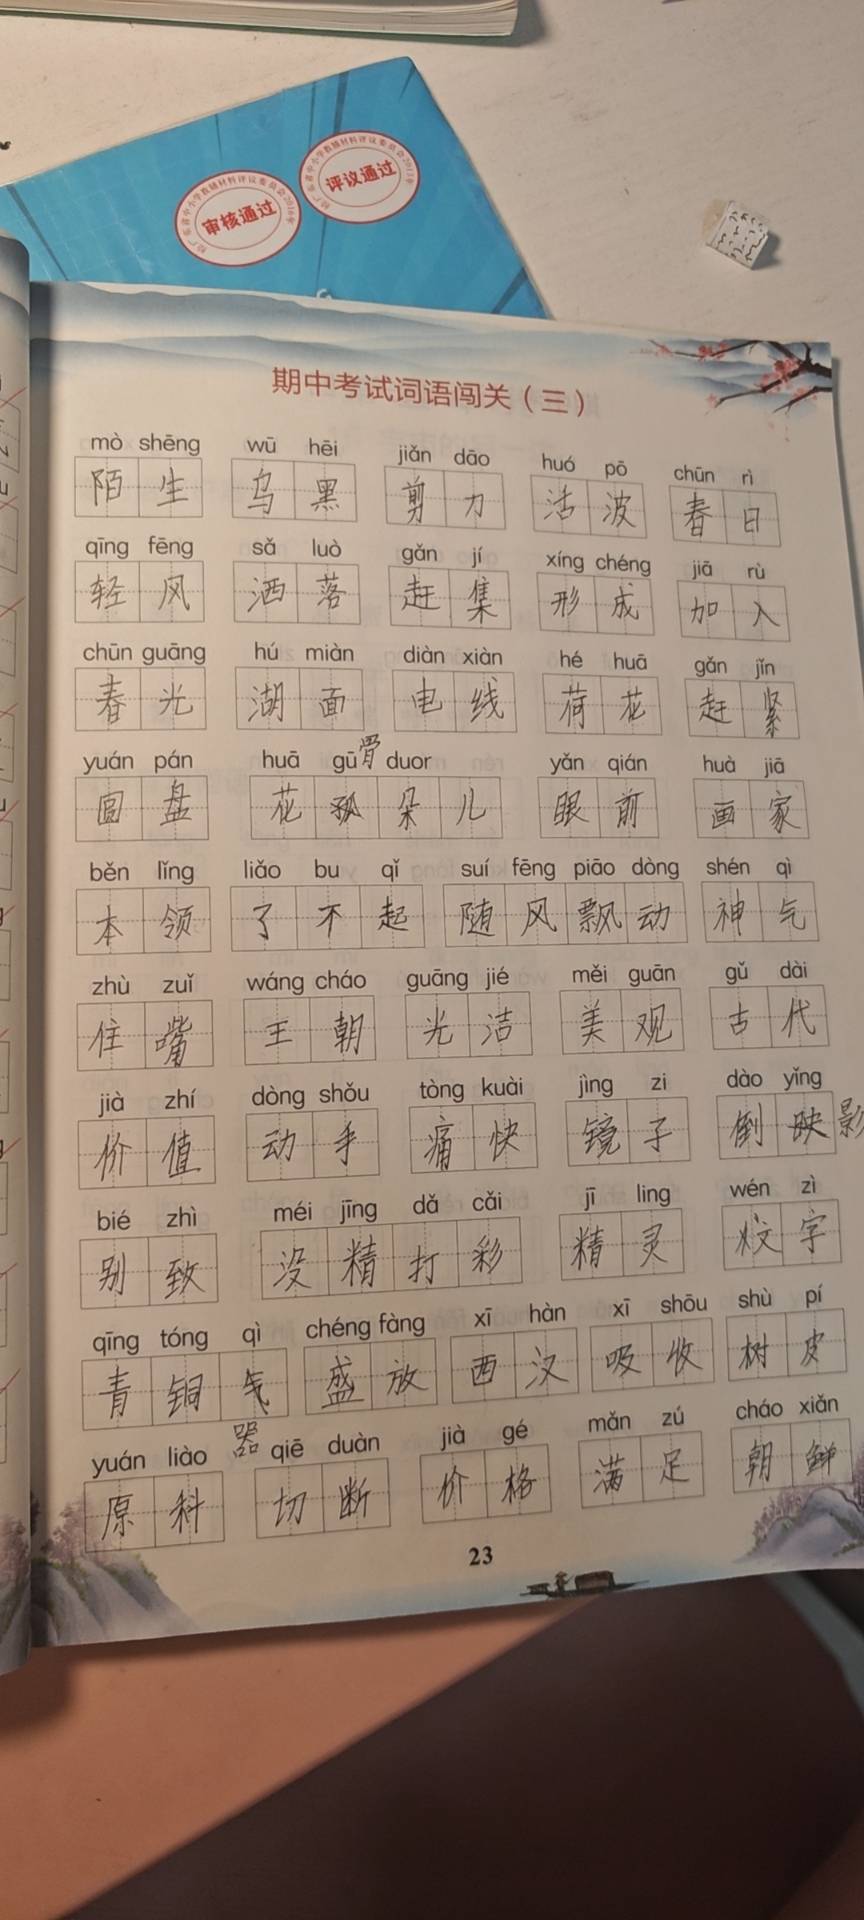 审核通过
评议通过
期中考试词语闯关（三）
mò shēng wū hēi jiǎn dāo huó pō chūn rì
陌生 乌黑 剪刀 活波 春日
qīng fēng sǎ luò gǎn jí xíng chéng jiā rù
轻风 洒落 赶集 形成 加入
chūn guāng hú miàn diàn xiàn hé huā gǎn jǐn
春光 湖面 电线 荷花 赶紧
yuán pán huā gū 骨 duor yǎn qián huà jiā
圆盘 花孤朵儿 眼前 画家
běn lǐng liǎo bu qǐ suí fēng piāo dòng shén qì
本领 了不起 随风飘动 神气
zhù zuǐ wáng cháo guāng jié měi guān gǔ dài
住嘴 王朝 光洁 美观 古代
jià zhí dòng shǒu tòng kuài jìng zi dào yǐng
价值 动手 痛快 镜子 倒映 影
bié zhì méi jīng dǎ cǎi jī ling wén zì
别致 没精打彩 精灵 文字
qīng tóng qì chéng fàng xī hàn xī shōu shù pí
青铜气 盛放 西汉 吸收 树皮
yuán liào 器 qiē duàn jià gé mǎn zú cháo xiǎn
原料 切断 价格 满足 朝鲜
23